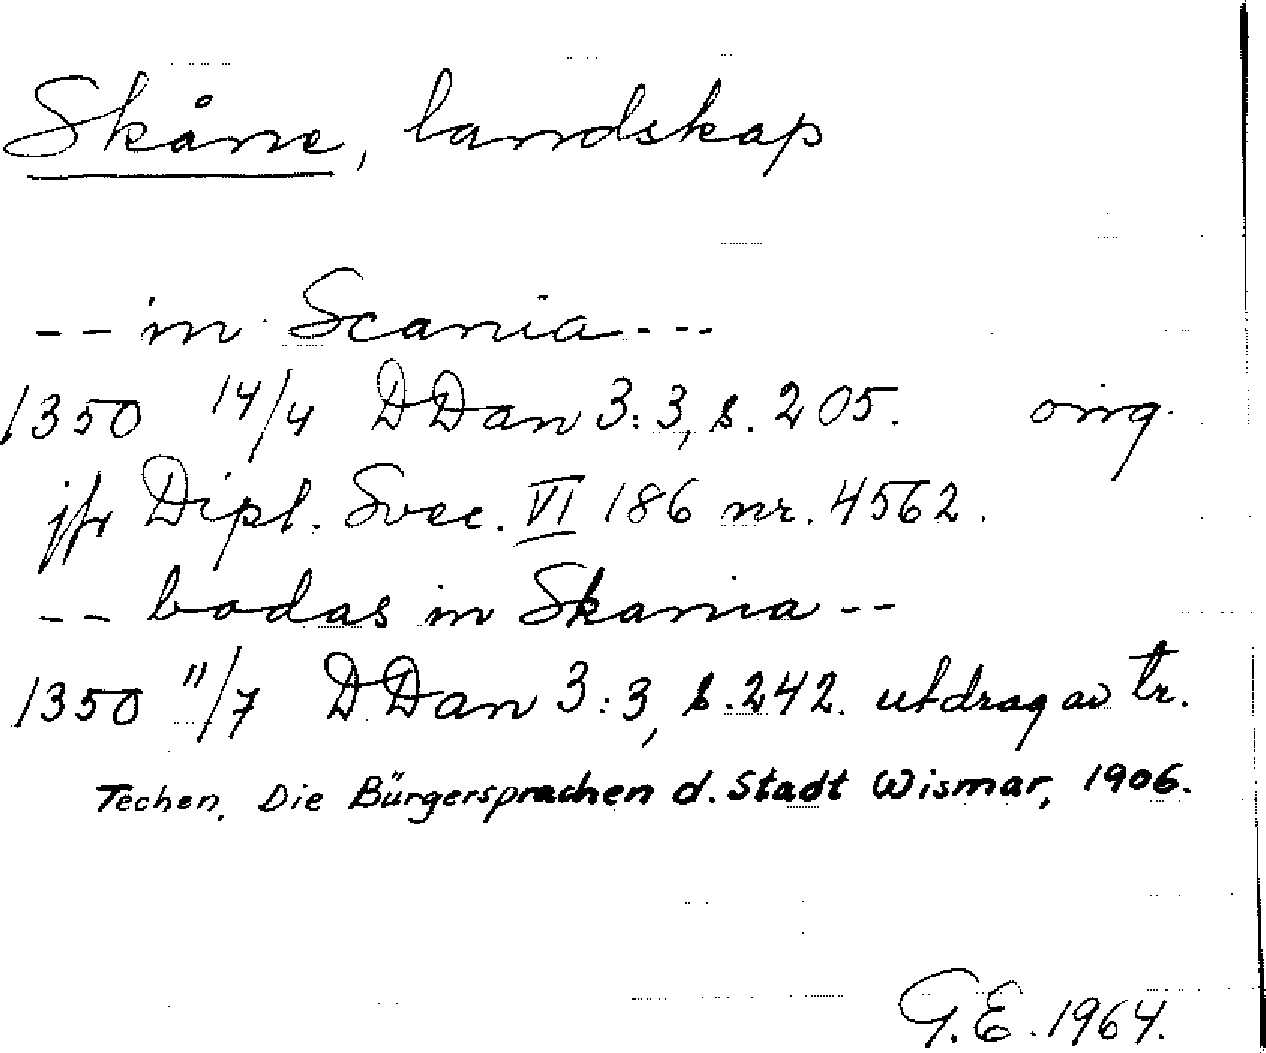 Skåne, landskap
-- in Scania ---
1350 14/4 DDan 3:3, s. 205. orig.
jfr Dipl. Svec. VI 186 nr. 4562.
-- bodas in Skania --
1350 11/7 DDan 3:3, s. 242. utdrag av tr.
Techen, Die Bürgersprachen d. Stadt Wismar, 1906.
G.E. 1964.